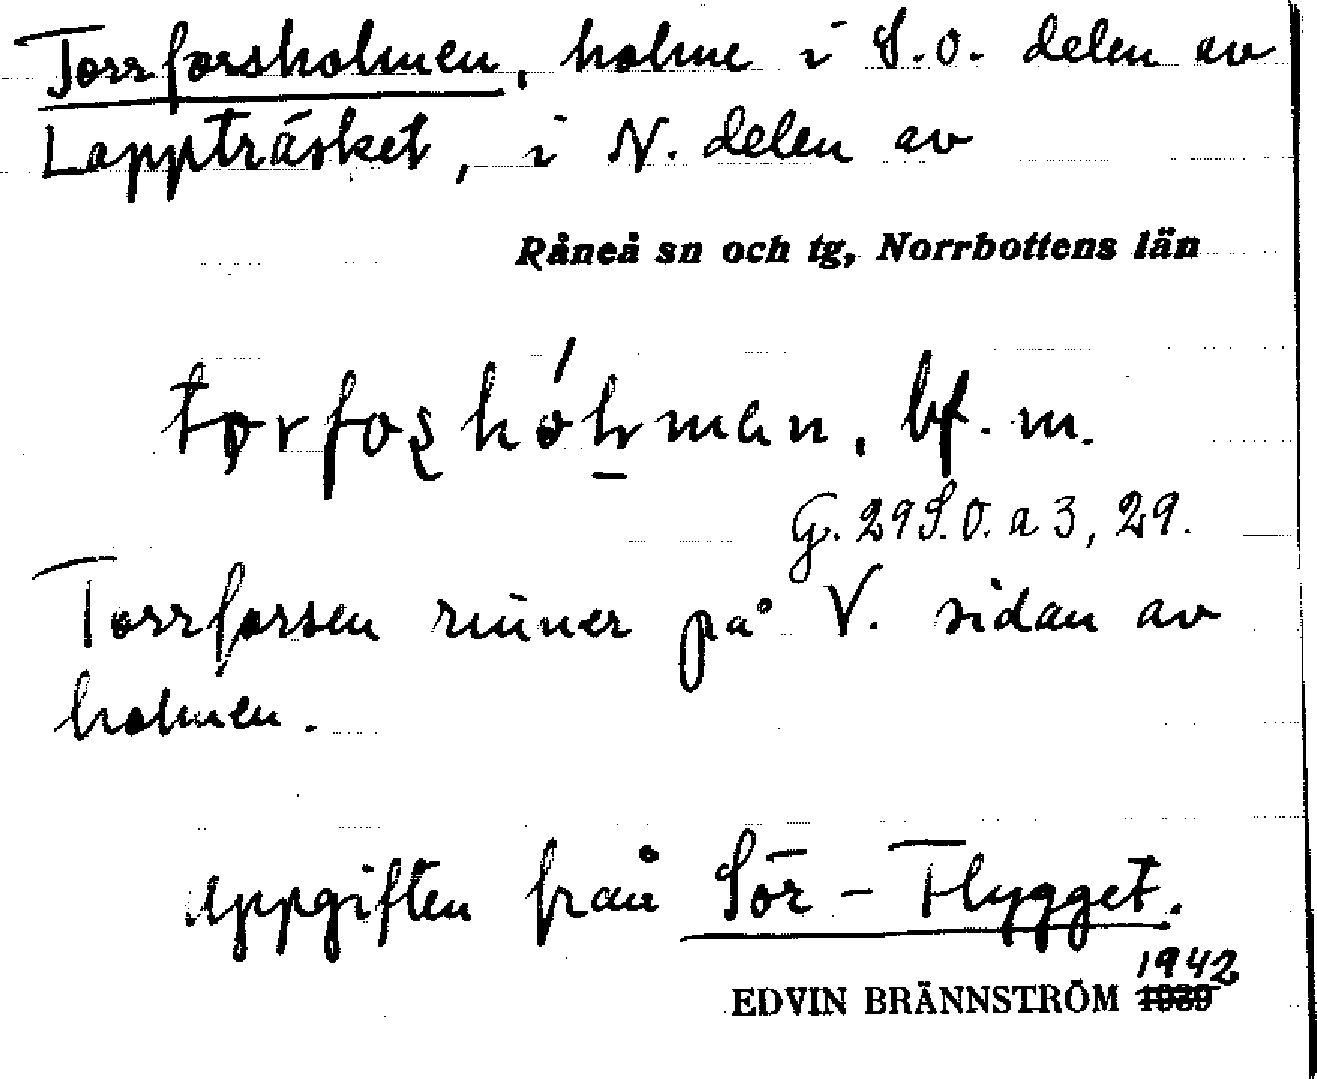 Torrforsholmen, holme i S.O. delen av
Lappträsket, i N. delen av
Råneå sn och tg, Norrbottens län
bf. m.
G. 29 S.O. a 3, 29.
Torrforsen rinner på V. sidan av
holmen.
Uppgiften från Sör-Flygget.
1942
EDVIN BRÄNNSTRÖM 1939